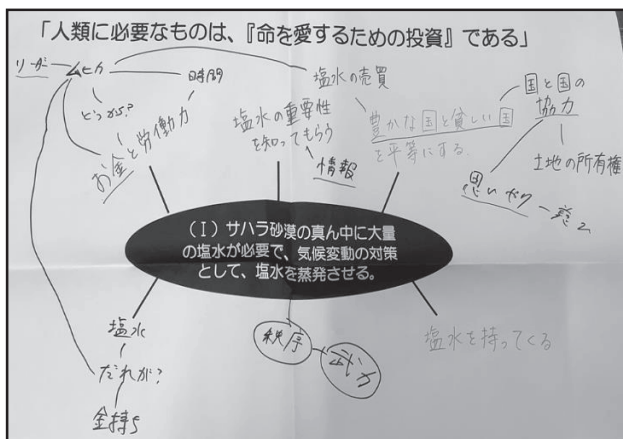 「人類に必要なものは、『命を愛するための投資』である」
リーダー
ムヒカ
時間
どこから?
お金と労働力
塩水の売買
塩水の重要性
を知ってもらう
情報
豊かな国と貧しい国
を平等にする
国と国の
協力
土地の所有権
思いやり
(Ⅰ)サハラ砂漠の真ん中に大量
の塩水が必要で、気候変動の対策
として、塩水を蒸発させる。
塩水
だれが?
金持ち
秩序
武力
塩水を持ってくる